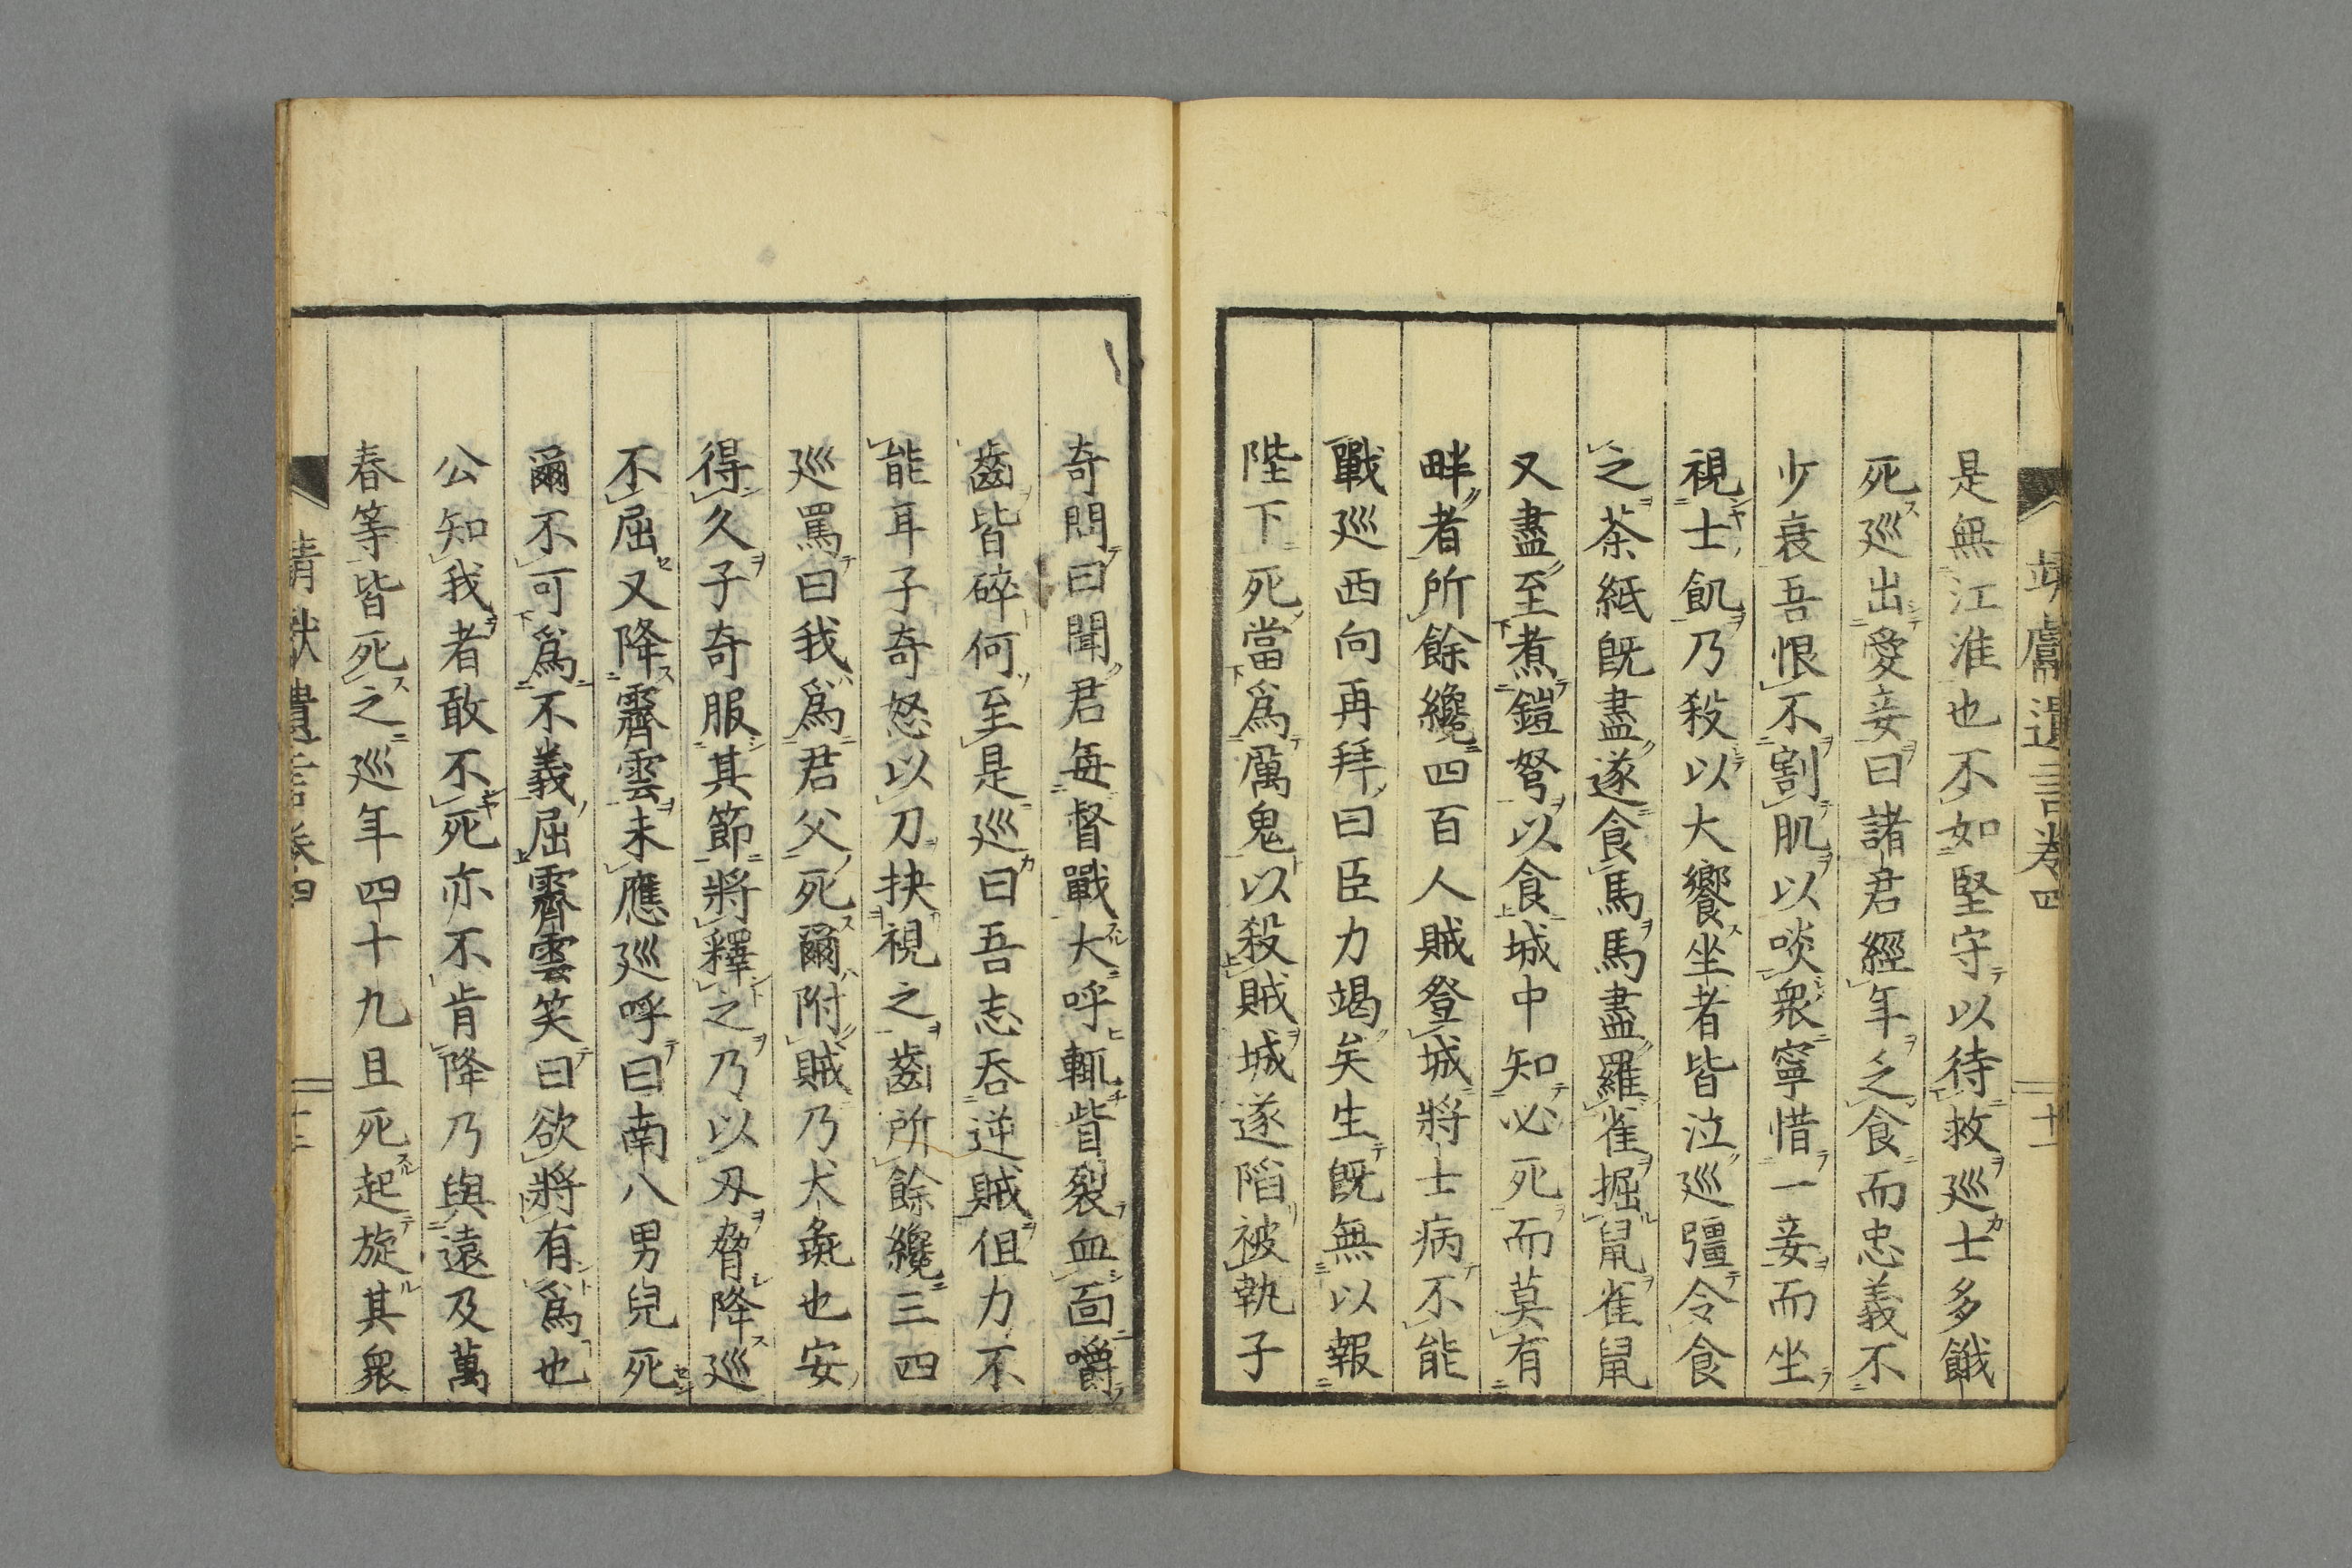 靖獻遺言卷四
十一
是無江淮也不如堅守以待救巡士多餓
死巡出愛妾曰諸君經年乏食而忠義不
少衰吾恨不割肌以啖衆寧惜一妾而坐
視士飢乃殺以大饗坐者皆泣巡彊令食
之茶紙既盡遂食馬馬盡羅雀掘鼠雀鼠
又盡至煮鎧弩以食城中知必死而莫有
畔者所餘纔四百人賊登城將士病不能
戰巡西向再拜曰臣力竭矣生既無以報
陛下死當爲厲鬼以殺賊城遂陷被執子
奇問曰聞君每督戰大呼輒眥裂血面嚼
齒皆碎何至是巡曰吾志吞逆賊但力不
能耳子奇怒以刀抉視之齒所餘纔三四
巡罵曰我爲君父死爾附賊乃犬彘也安
得久子奇服其節將釋之乃以刄脅降巡
不屈又降霽雲未應巡呼曰南八男兒死
爾不可爲不義屈霽雲笑曰欲將有爲也
公知我者敢不死亦不肯降乃與遠及萬
春等皆死之巡年四十九且死起旋其衆
靖獻遺言卷四
十二